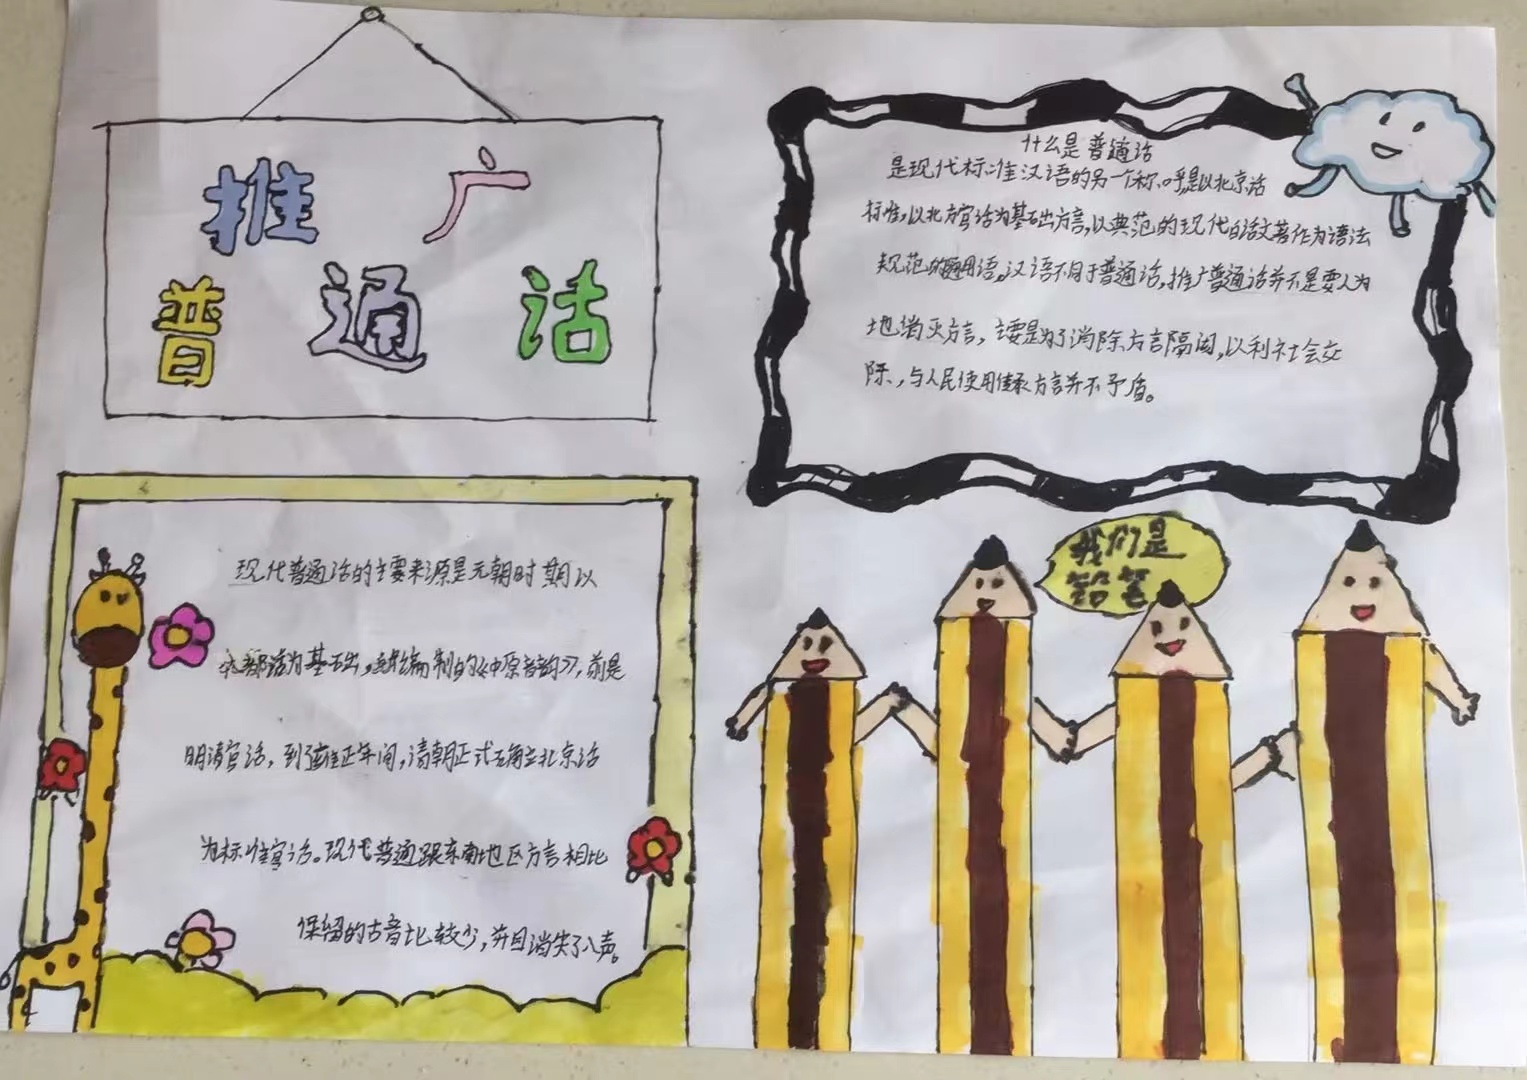 推广
普通话
什么是普通话
是现代标准汉语的另一个称呼,是以北京话
标准,以北方官话为基础方言,以典范的现代白话文著作为语法
规范的通用语,汉语不同于普通话,推广普通话并不是要人为
地消灭方言,主要是为了消除方言隔阂,以利社会交
际,与人民使用传承方言并不矛盾。
现代普通话的主要来源是元朝时期以
大都话为基础,编制的《中原音韵》,前是
明清官话,到雍正年间,清朝正式确立北京话
为标准官话。现代普通跟东南地区方言相比
保留的古音比较少,并且消失了入声。
我们是
铅笔